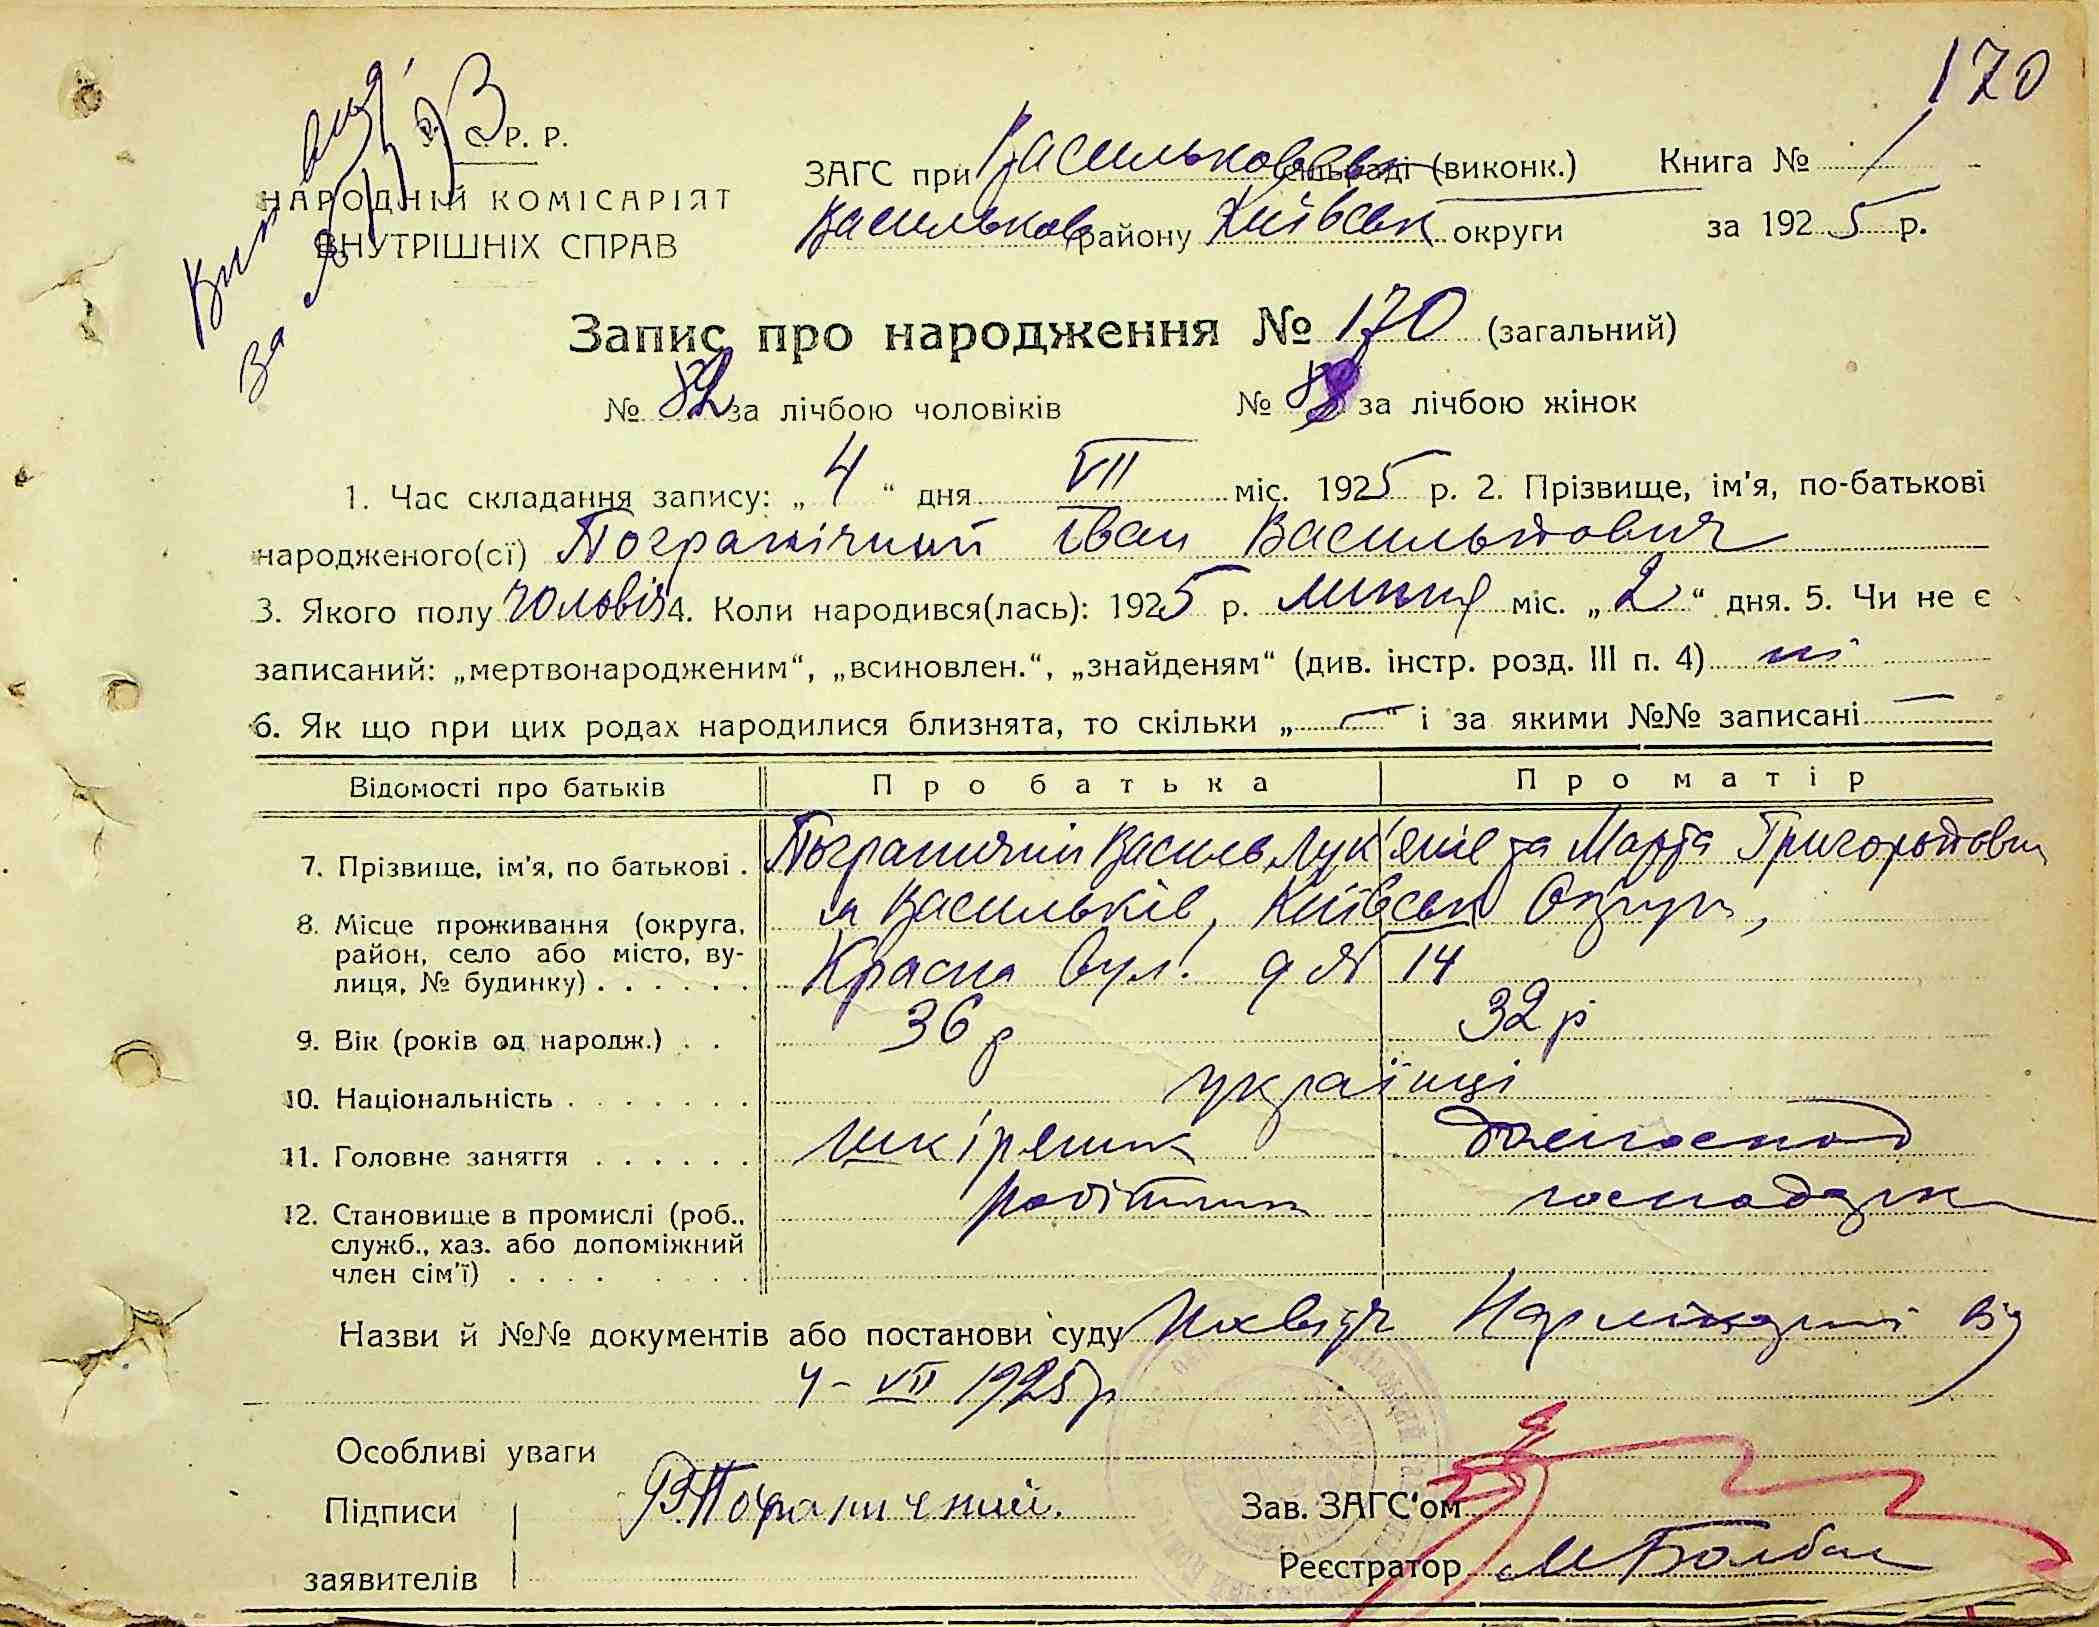 170
С. Р. Р.
НАРОДНІЙ КОМІСАРІЯТ
ВНУТРІШНІХ СПРАВ
ЗАГС при Васильковськ сільраді (виконк.) Книга № 1
Васильков району Київськ округи за 1925 р.
Запис про народження № 170 (загальний)
№ 82 за лічбою чоловіків № за лічбою жінок
1. Час складання запису: „ 4 “ дня VII міс. 1925 р. 2. Прізвище, ім'я, по-батькові
народженого(сї) Пограничний Іван Васильович
3. Якого полу чоловіч 4. Коли народився(лась): 1925 р. липня міс. „ 2 “ дня. 5. Чи не є
записаний: „мертвонародженим“, „всиновлен.“, „знайденям“ (див. інстр. розд. III п. 4) ні
6. Як що при цих родах народилися близнята, то скільки „ — “ і за якими №№ записані —
Відомості про батьків Про батька Про матір
7. Прізвище, ім'я, по батькові . Пограничний Василь Лук'янів та Марта Григорьовн
8. Місце проживання (округа, м Васильків, Київськ Округи,
район, село або місто, ву-
лиця, № будинку) . . . . . . Красна вул. д № 14
9. Вік (років од народж.) . . 36 р 32 р
10. Національність . . . . . . . українці
11. Головне заняття . . . . . . шкіряник домгоспод
12. Становище в промислі (роб., робітник
служб., хаз. або допоміжний
член сім'ї) . . . . . . . .
Назви й №№ документів або постанови суду від
4 – VII 1925 р
Особливі уваги
Підписи В.Пограничний. Зав. ЗАГС'ом
заявителів Реєстратор